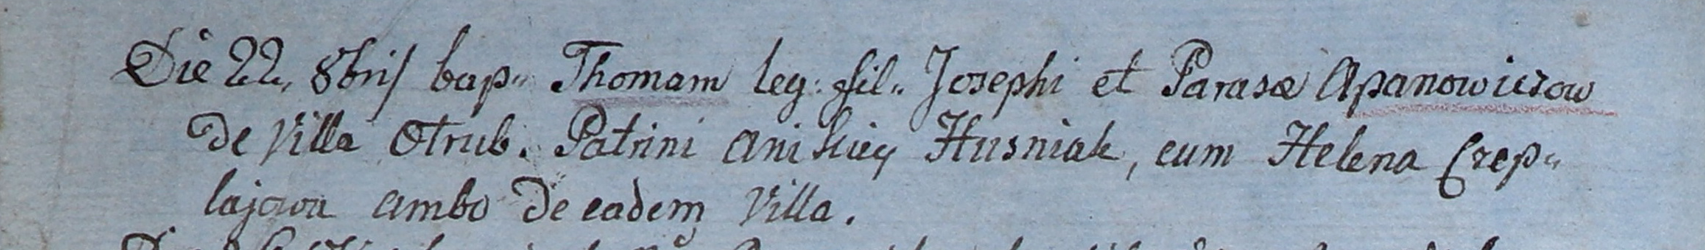 Die 22, 8bris bap: Thomam leg: fil: Josephi et Parasæ Apanowiczow
de Villa Otrub. Patrini Anikiey Husniak, cum Helena Crep=
lajowa ambo de eadem Villa.